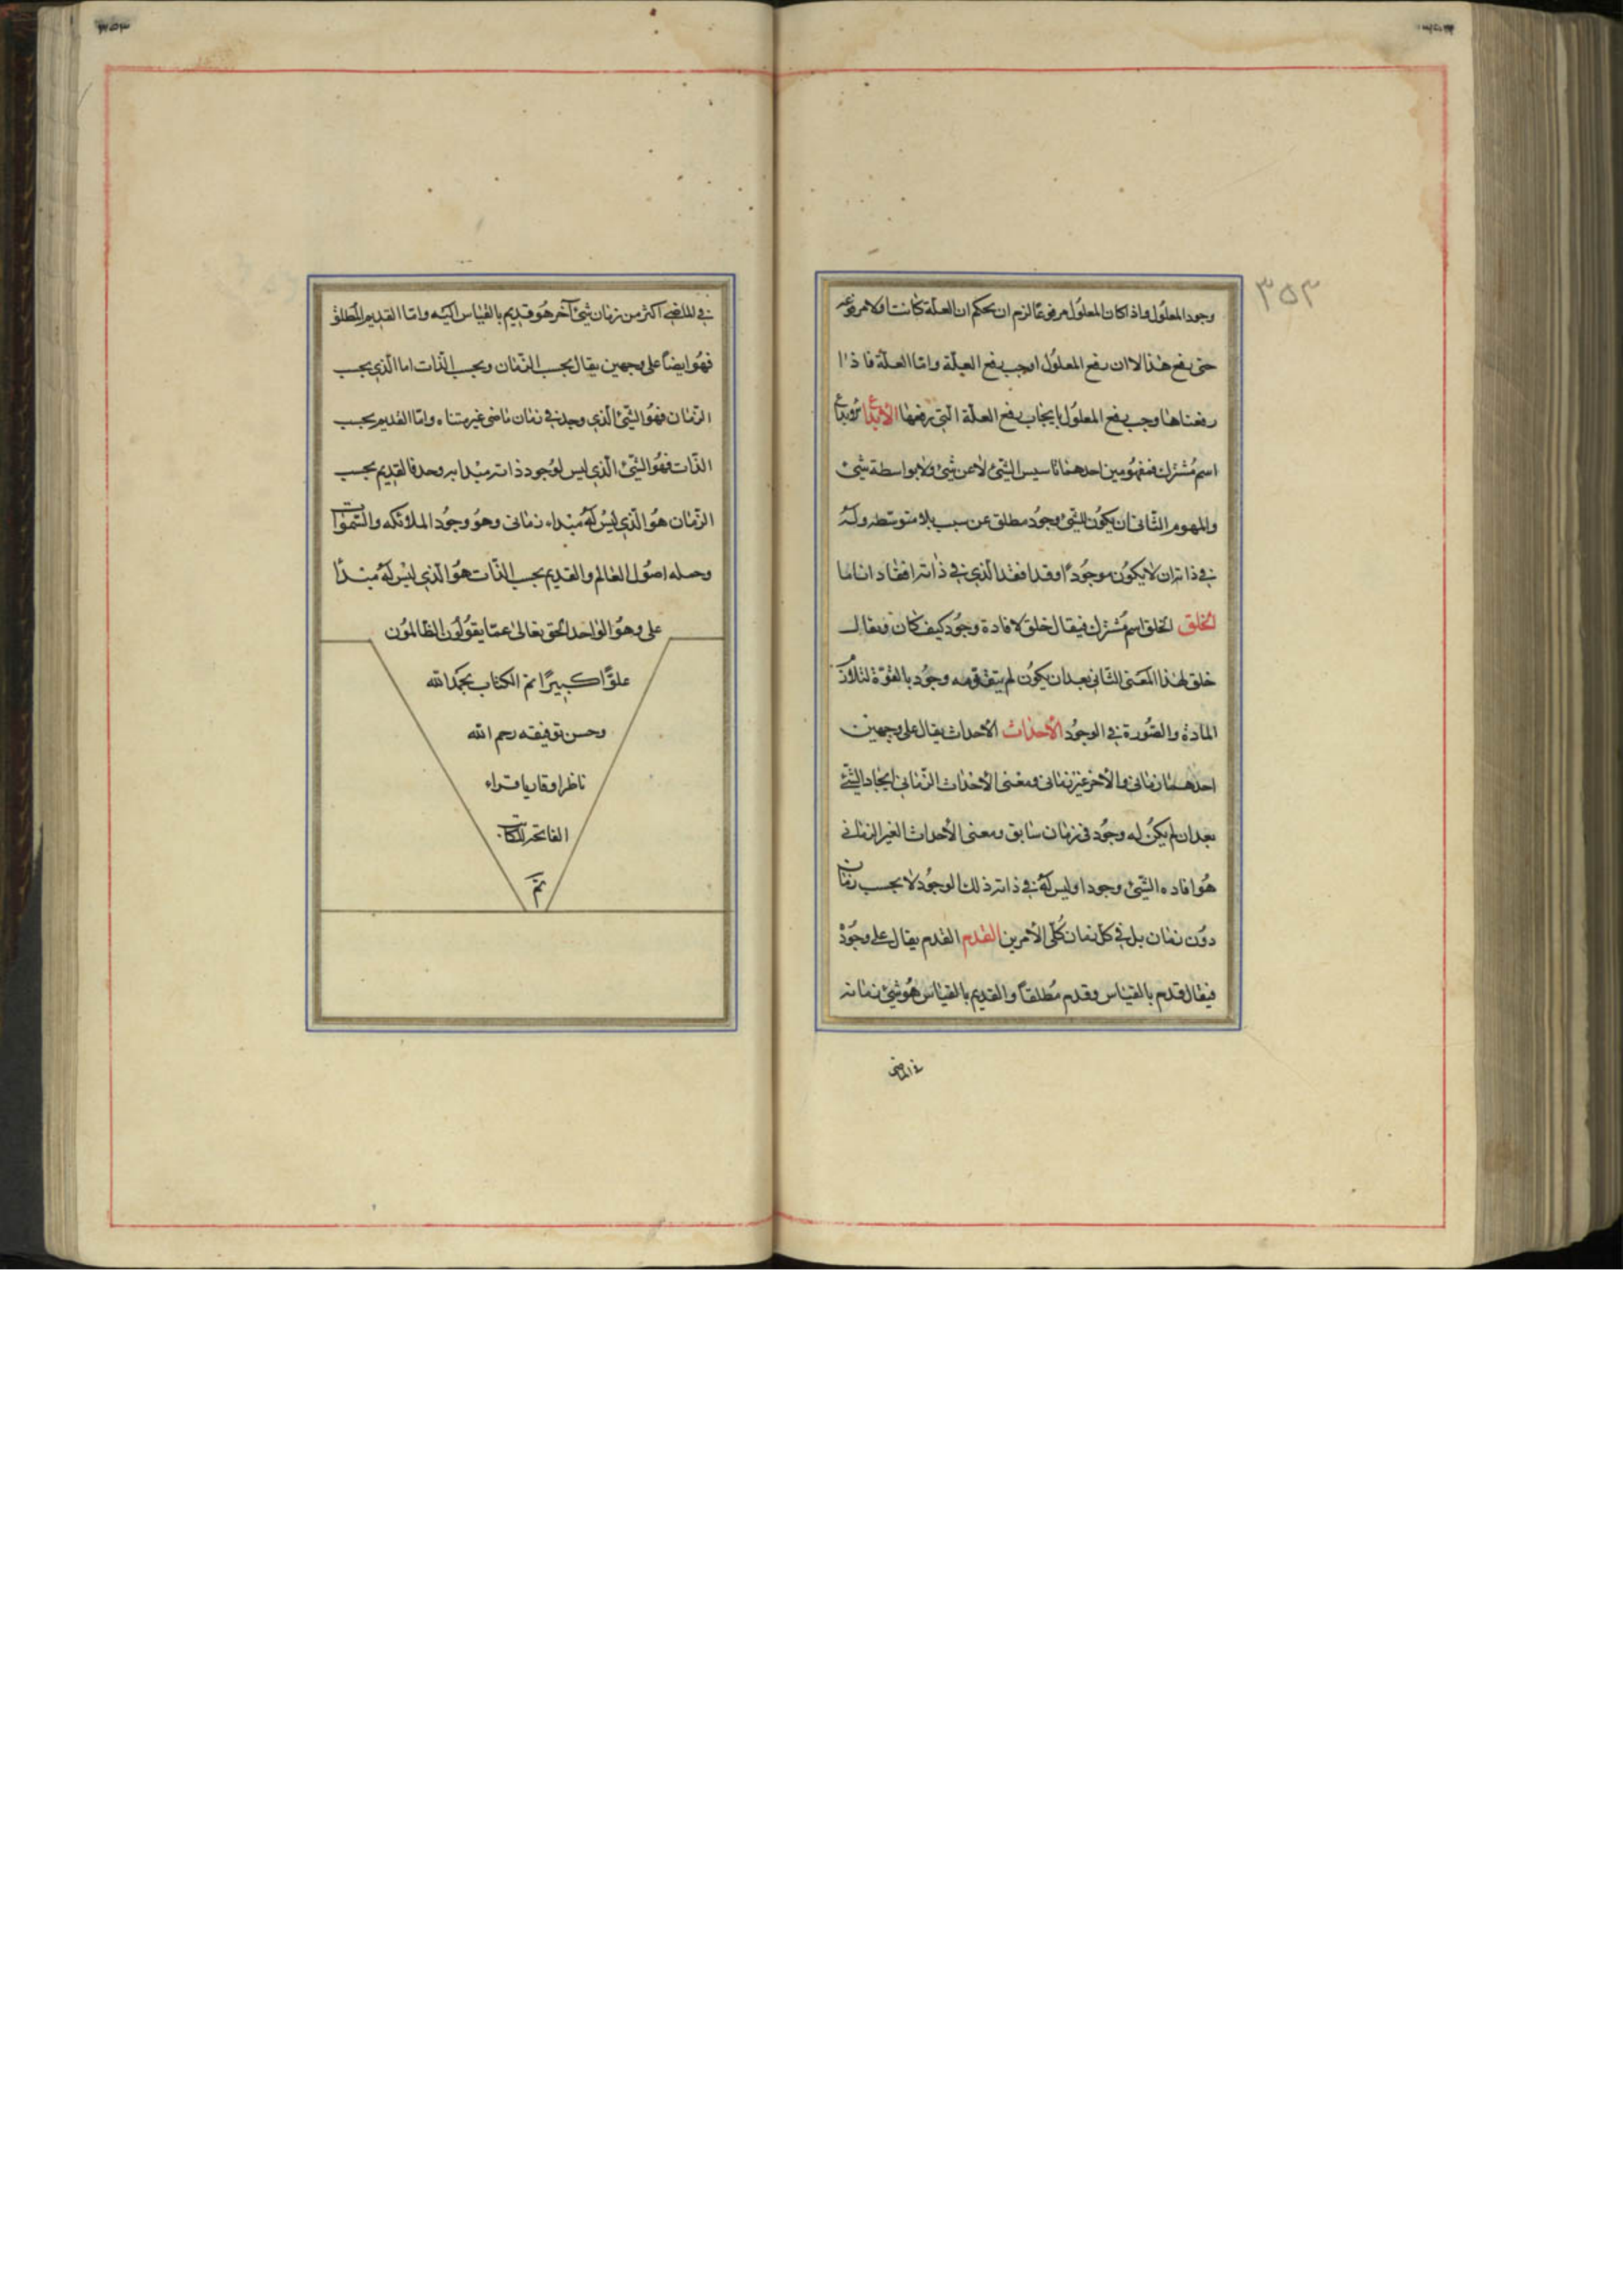 ٣٥٣
وجود المعلول واذا كان المعلول مرفوعًا لزم ان يحكم ان العلة كانت اولا مرفوعة
حتى رفع هذا لا ان رفع المعلول اوجب رفع العلة واما العلة فاذا
رفعناها وجب رفع المعلول بايجاب رفع العلة التي رفعها الابداع الابداع
اسم مشترك لمفهومين احدهما تاسيس الشئ لا عن شئ ولا بواسطة شئ
والمفهوم الثانى ان يكون للشئ وجود مطلق عن سبب بلا متوسط وله
فى ذاته ان لا يكون موجودًا وقد افقد الذى فى ذاته افقادا تاما
الخلق الخلق اسم مشترك فيقال خلق لافادة وجود كيف كان ويقال
خلق لهذا المعنى الثانى بعد ان يكون لم يتقدمه وجود بالقوة لتلازم
المادة والصورة فى الوجود الأحداث الأحداث يقال على وجهين
احدهما زمانى والأخر غير زمانى ومعنى الأحداث الزمانى ايجاد الشئ
بعد ان لم يكن له وجود فى زمان سابق ومعنى الأحداث الغير الزمانى
هو افاده الشئ وجودا وليس له فى ذاته ذلك الوجود لا بحسب زمان
دون زمان بل فى كل زمان كلى الأمرين القدم القدم يقال على وجوه
فيقال قدم بالقياس وقدم مطلقاً والقديم بالقياس هو شئ زمانه
فى الماضى
فى الماضى اكثر من زمان شئ آخر هو قديم بالقياس اليه واما القديم المطلق
فهو ايضاً على وجهين يقال بحسب الزمان وبحسب الذات اما الذى بحسب
الزمان فهو الشئ الذى وجد فى زمان ماضى غير متناه واما القديم بحسب
الذات فهو الشئ الذى ليس لوجود ذاته مبدا به وجد فالقديم بحسب
الزمان هو الذى ليس له مبداء زمانى وهو وجود الملائكه والسموات
وجمله اصول العالم والقديم بحسب الذات هو الذى ليس له مبدأ
على وهو الواحد الحق تعالى عما يقولون الظالمون
علوًا كبيرًا تم الكتاب بحمد الله
وحسن توفيقه رحم الله
ناظرا وقاريا قراء
الفاتحه للكاتب
تم